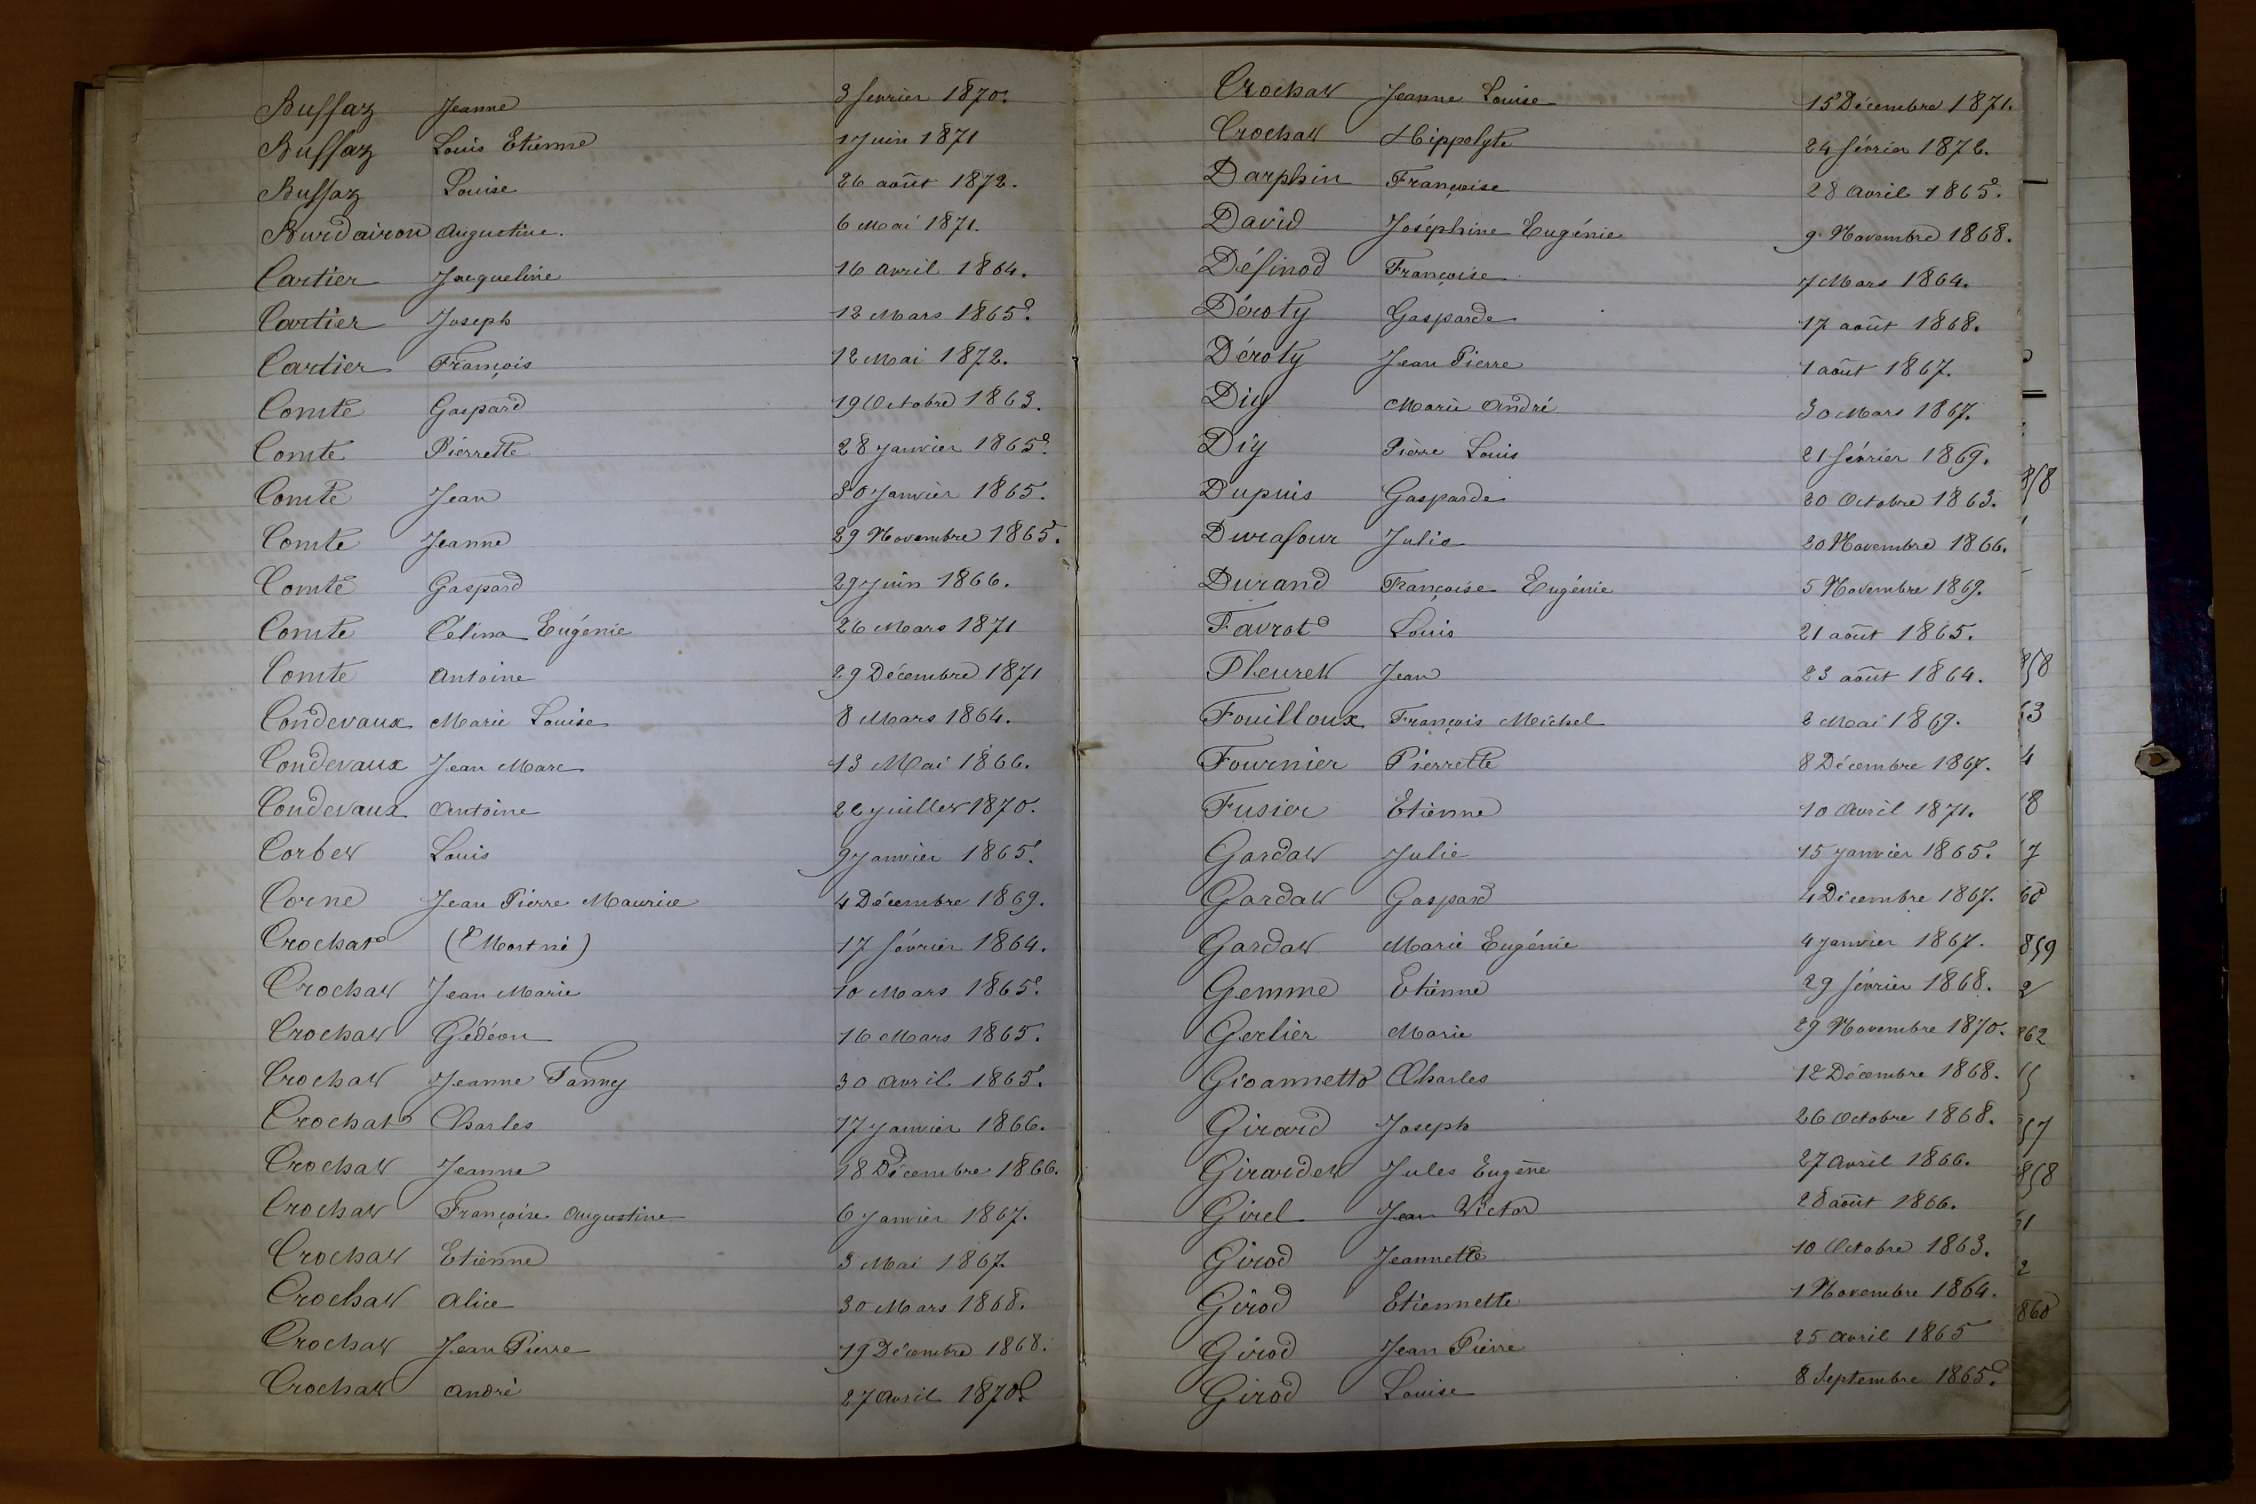 Buffaz Jeanne 3 février 1870.
Buffaz Louis Etienne 1 Juin 1871
Buffaz Louise 26 août 1872.
Burdairon Augustine. 6 Mai 1871.
Cartier Jacqueline 16 Avril 1864.
Cartier Joseph 12 Mars 1865.
Cartier François 12 Mai 1872.
Comte Gaspard 19 Octobre 1863.
Comte Pierrette 28 Janvier 1865.
Comte Jean 30 Janvier 1865.
Comte Jeanne 29 Novembre 1865.
Comte Gaspard 29 Juin 1866.
Comte Célina Eugénie 26 Mars 1871
Comte Antoine 29 Décembre 1871
Condevaux Marie Louise 8 Mars 1864.
Condevaux Jean Marc 13 Mai 1866.
Condevaux Antoine 22 Juillet 1870.
Corbet Louis 9 Janvier 1865.
Corne Jean Pierre Maurice 4 Décembre 1869.
Crochat (Mort né) 17 février 1864.
Crochat Jean Marie 10 Mars 1865.
Crochat Gédéon 16 Mars 1865.
Crochat Jeanne Fanny 30 Avril 1865.
Crochat Charles 17 Janvier 1866.
Crochat Jeanne 18 Décembre 1866.
Crochat Françoise Augustine 6 Janvier 1867.
Crochat Etienne 3 Mai 1867.
Crochat Alice 30 Mars 1868.
Crochat Jean Pierre 19 Décembre 1868.
Crochat André 27 Avril 1870.
Crochat Jeanne Louise 15 Décembre 1871.
Crochat Hippolyte 24 février 1872.
Darphin Françoise 28 Avril 1865.
David Joséphine Eugénie 9 Novembre 1868.
Définod Françoise 7 Mars 1864.
Déroty Gasparde 17 août 1868.
Déroty Jean Pierre 1 août 1867.
Diy Marie André 30 Mars 1867.
Diy Pierre Louis 21 février 1869.
Dupuis Gasparde 20 Octobre 1863.
Durafour Julie 20 Novembre 1866.
Durand Françoise Eugénie 5 Novembre 1869.
Favrot Louis 21 août 1865.
Fleuret Jean 23 août 1864.
Fouilloux François Michel 2 Mai 1869.
Fournier Pierrette 8 Décembre 1867.
Fusier Etienne 10 Avril 1871.
Gardat Julie 15 Janvier 1865.
Gardat Gaspard 4 Décembre 1867.
Gardat Marie Eugénie 4 Janvier 1867.
Gemme Etienne 29 février 1868.
Gerlier Marie 29 Novembre 1870.
Gioannetto Charles 12 Décembre 1868.
Girard Joseph 26 Octobre 1868.
Girardet Jules Eugène 27 Avril 1866.
Girel Jean Victor 28 août 1866.
Girod Jeannette 10 Octobre 1863.
Girod Etiennette 1 Novembre 1864.
Girod Jean Pierre 25 Avril 1865
Girod Louise 8 Septembre 1865.